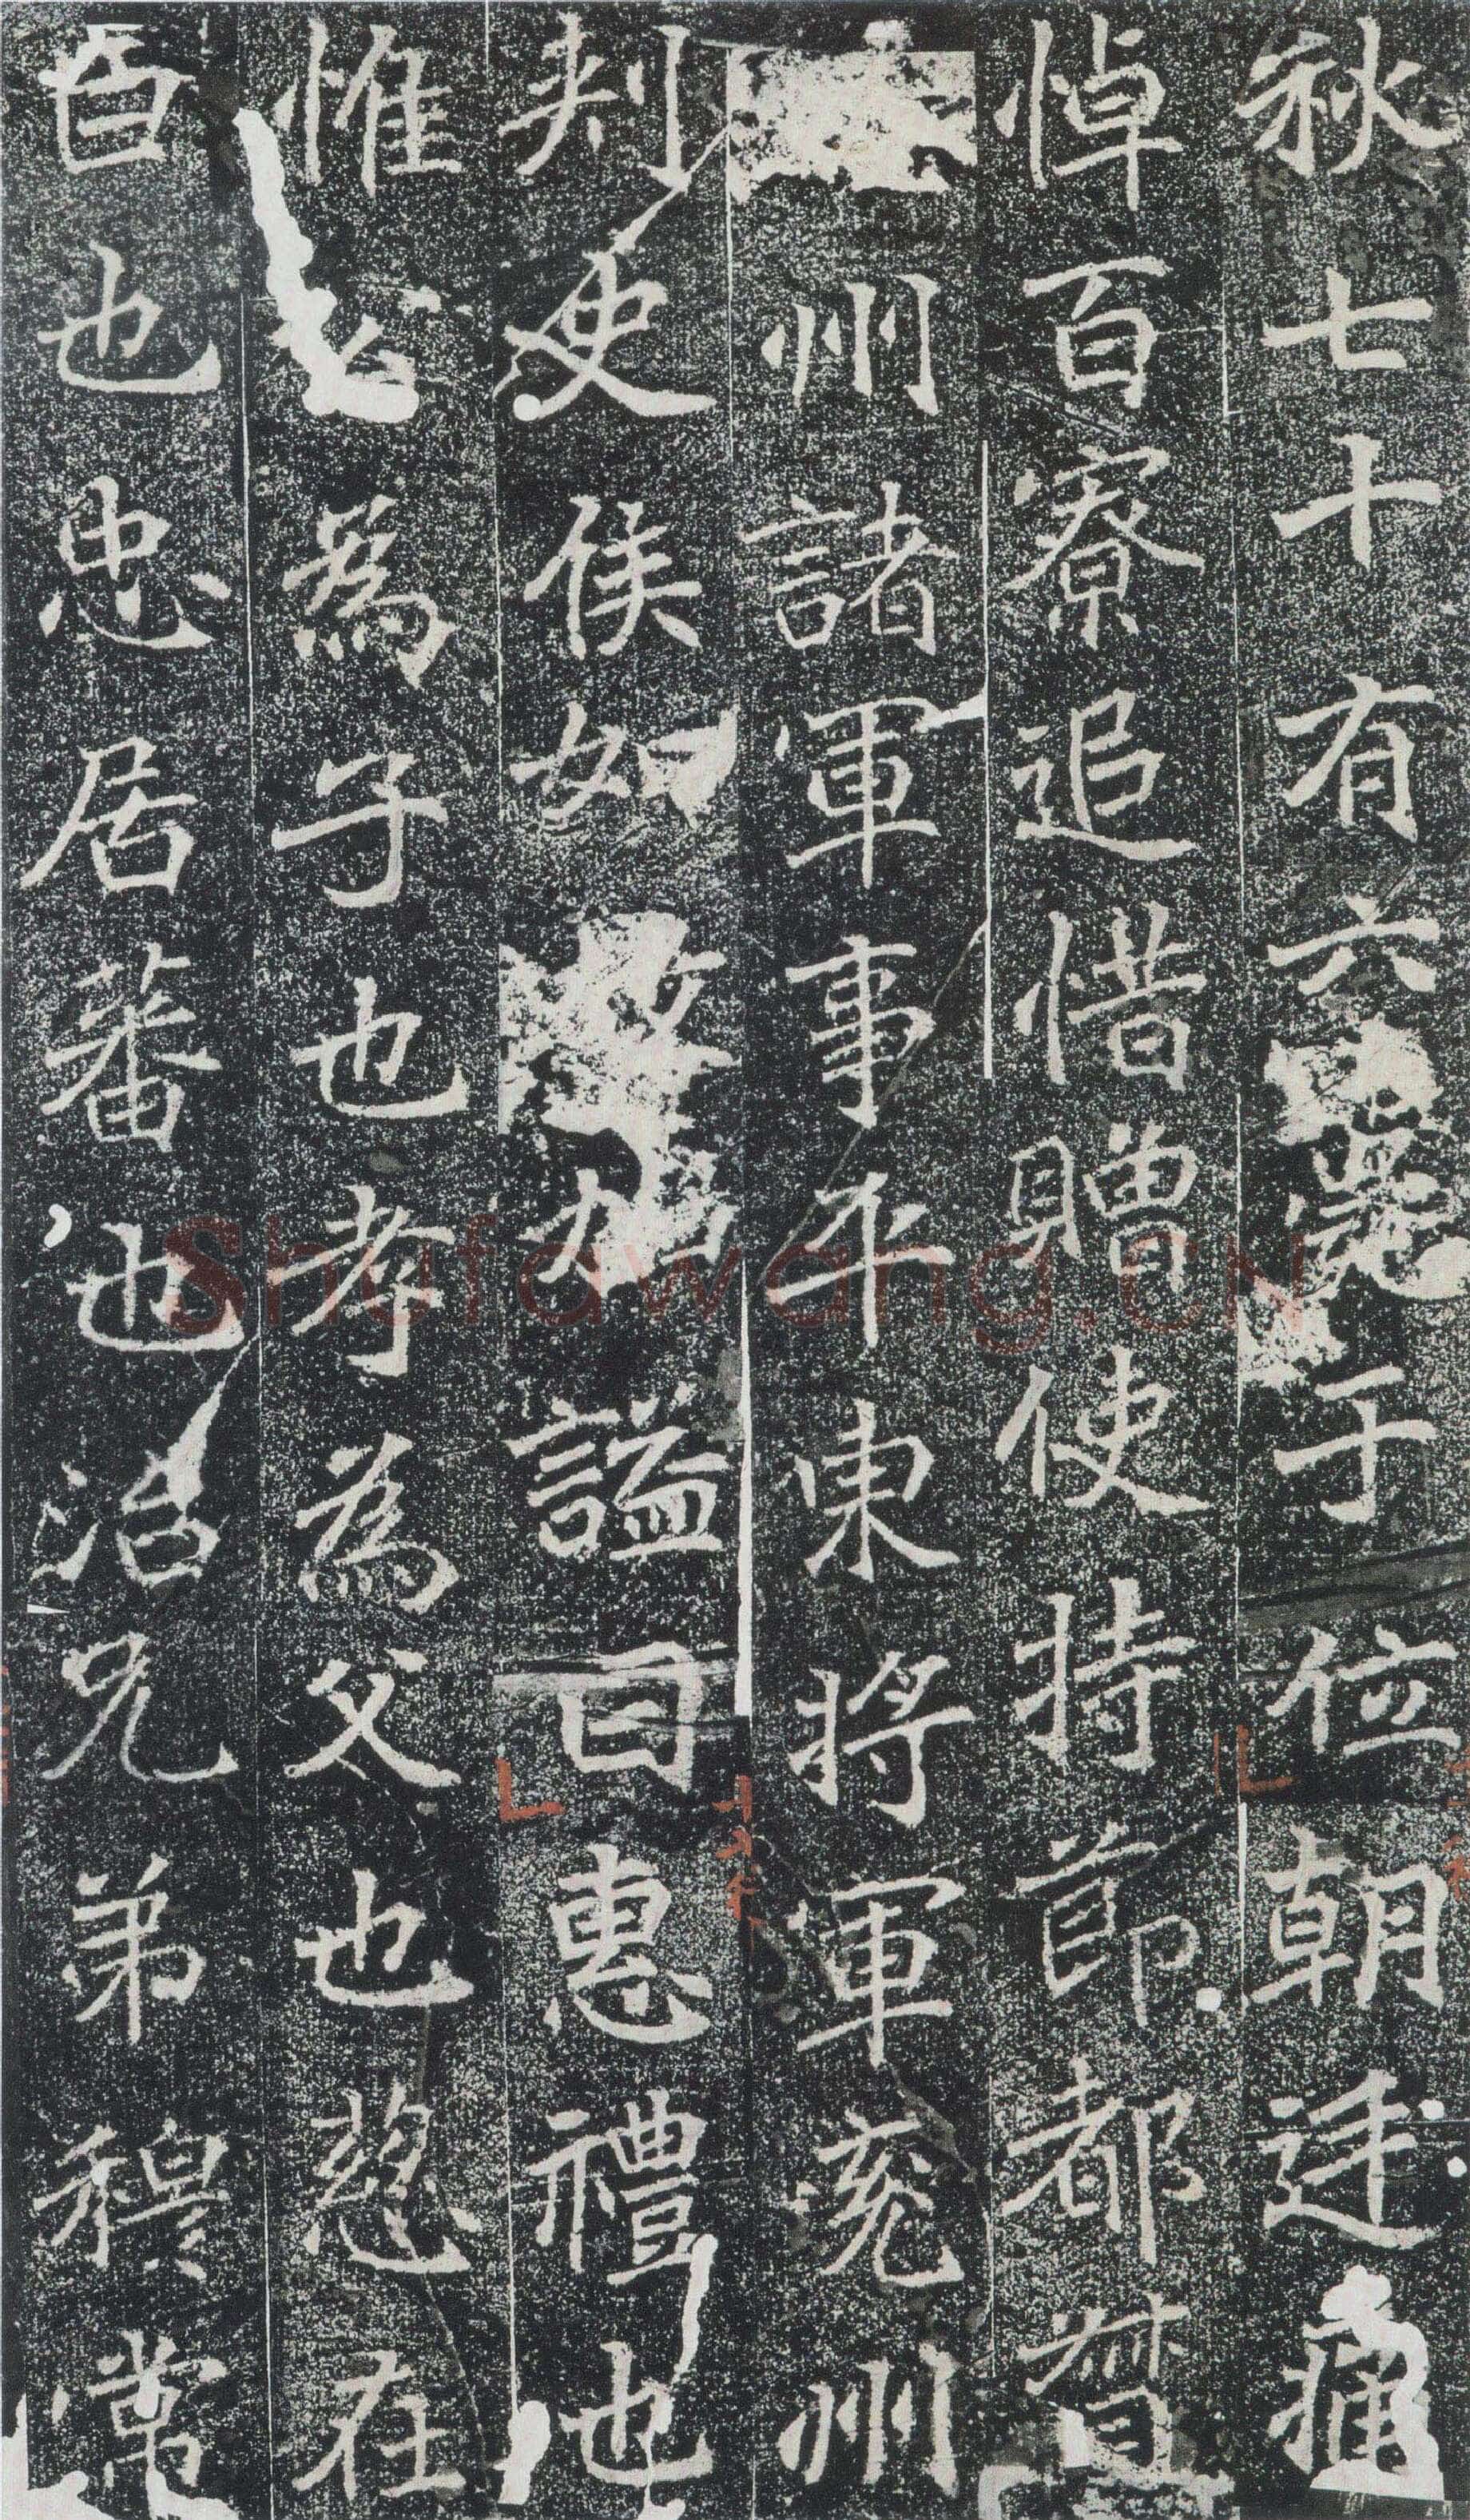 秋七十有六薨于位朝廷痛
悼百寮追惜贈使持節都督
州諸軍事平東將軍兗州
刺使侯如故加謚曰惠禮也
惟公為子也孝為父也慈在
臣也忠居蕃也治兄弟穆常
Shufawang.CN